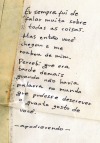 Eu sempre fui de
falar muito sobre
todas as coisas.
Mas então você
chegou e me
roubou de mim.
Percebi que era
tarde demais
quando não havia
palavra no mundo
que pudesse descrever
o quanto gosto de
você.